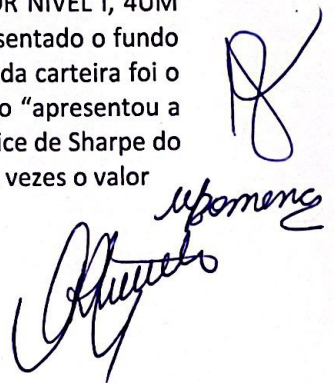 OR NIVEL I, 4UM
sentado o fundo
da carteira foi o
o “apresentou a
ice de Sharpe do
vezes o valor